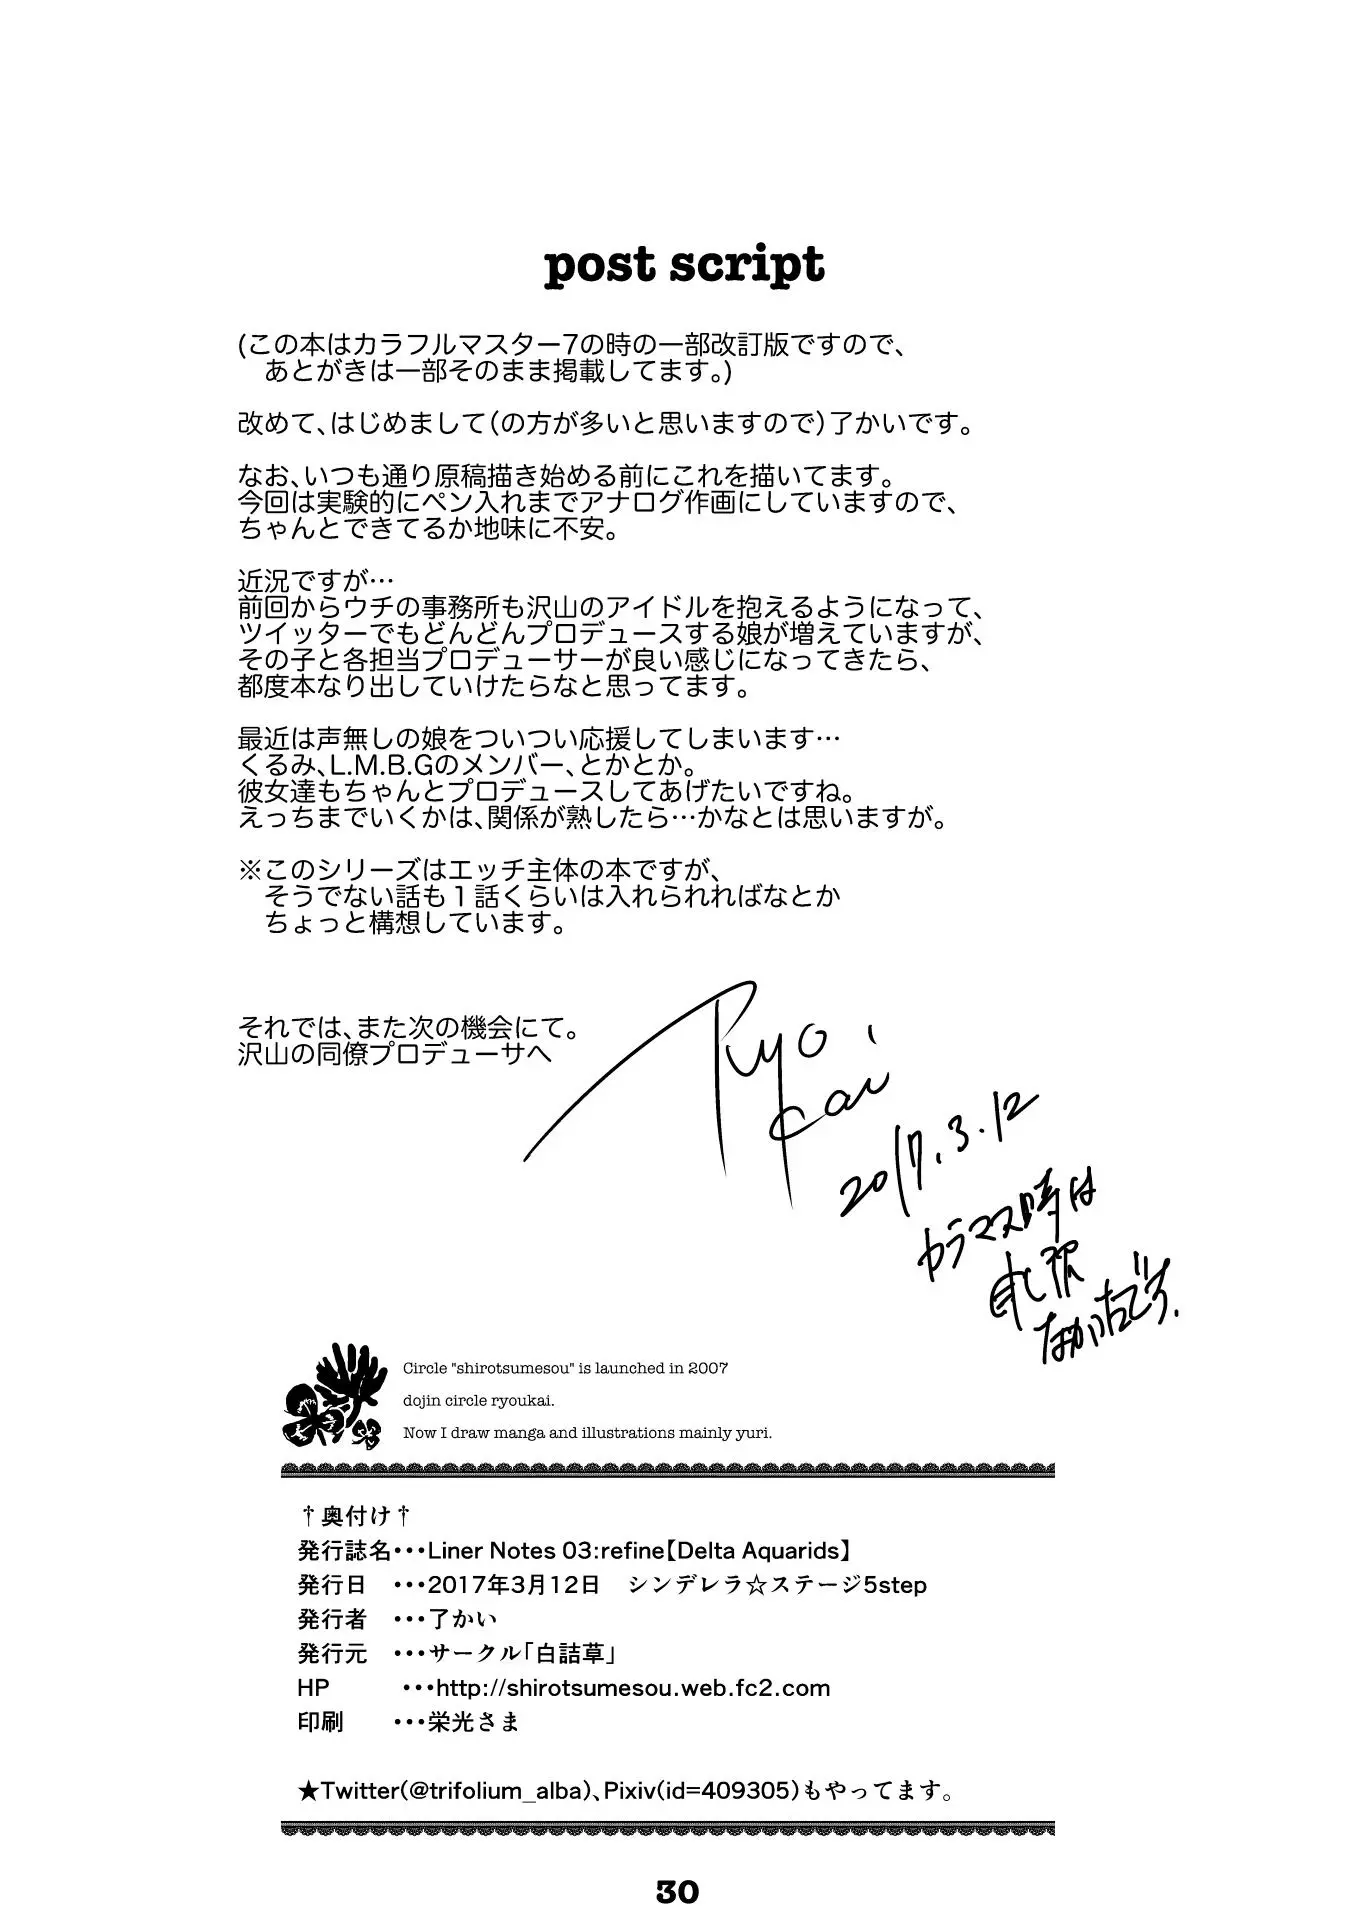 post script
(この本はカラフルマスター7の時の一部改訂版ですので、
あとがきは一部そのまま掲載してます。)
改めて、はじめまして(の方が多いと思いますので)了かいです。
なお、いつも通り原稿描き始める前にこれを描いてます。
今回は実験的にペン入れまでアナログ作画にしていますので、
ちゃんとできてるか地味に不安。
近況ですが…
前回からウチの事務所も沢山のアイドルを抱えるようになって、
ツイッターでもどんどんプロデュースする娘が増えていますが、
その子と各担当プロデューサーが良い感じになってきたら、
都度本なり出していけたらなと思ってます。
最近は声無しの娘をついつい応援してしまいます…
くるみ、L.M.B.Gのメンバー、とかとか。
彼女達もちゃんとプロデュースしてあげたいですね。
えっちまでいくかは、関係が熟したら…かなとは思いますが。
※このシリーズはエッチ主体の本ですが、
そうでない話も1話くらいは入れられればなとか
ちょっと構想しています。
それでは、また次の機会にて。
沢山の同僚プロデューサへ
Ryo.
Kai
2017.3.12
カラマス時は
申し訳
なかったです.
Circle "shirotsumesou" is launched in 2007
dojin circle ryoukai.
Now I draw manga and illustrations mainly yuri.
†奥付け†
発行誌名・・・Liner Notes 03:refine【Delta Aquarids】
発行日 ・・・2017年3月12日 シンデレラ☆ステージ5step
発行者 ・・・了かい
発行元 ・・・サークル「白詰草」
HP ・・・http://shirotsumesou.web.fc2.com
印刷 ・・・栄光さま
★Twitter(@trifolium_alba)、Pixiv(id=409305)もやってます。
30